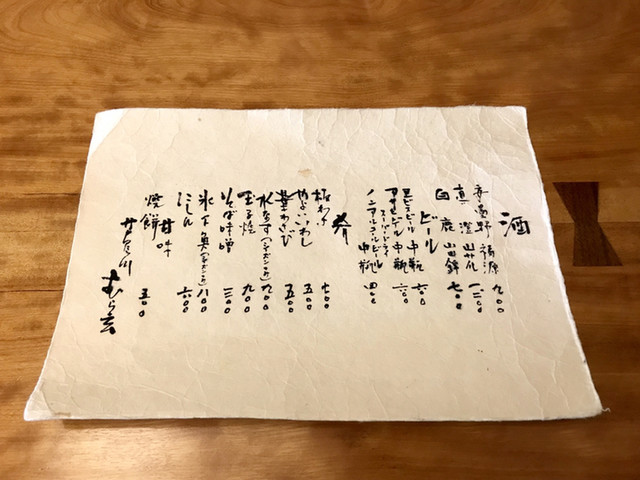 酒
福源 九〇〇
真澄 山花 一、二〇〇
白鹿 山田錦 七〇〇
ビール
ヱビスビール 中瓶 六〇〇
アサヒビール スーパードライ 中瓶 六〇〇
ノンアルコールビール 中瓶 四〇〇
肴
板わさ 七〇〇
いわし 五〇〇
葉わさび 五〇〇
水なす 九〇〇
玉子焼 九〇〇
そば味噌 三〇〇
氷下魚 八〇〇
にしん 六〇〇
甘味
焼餅 五〇〇
むら云